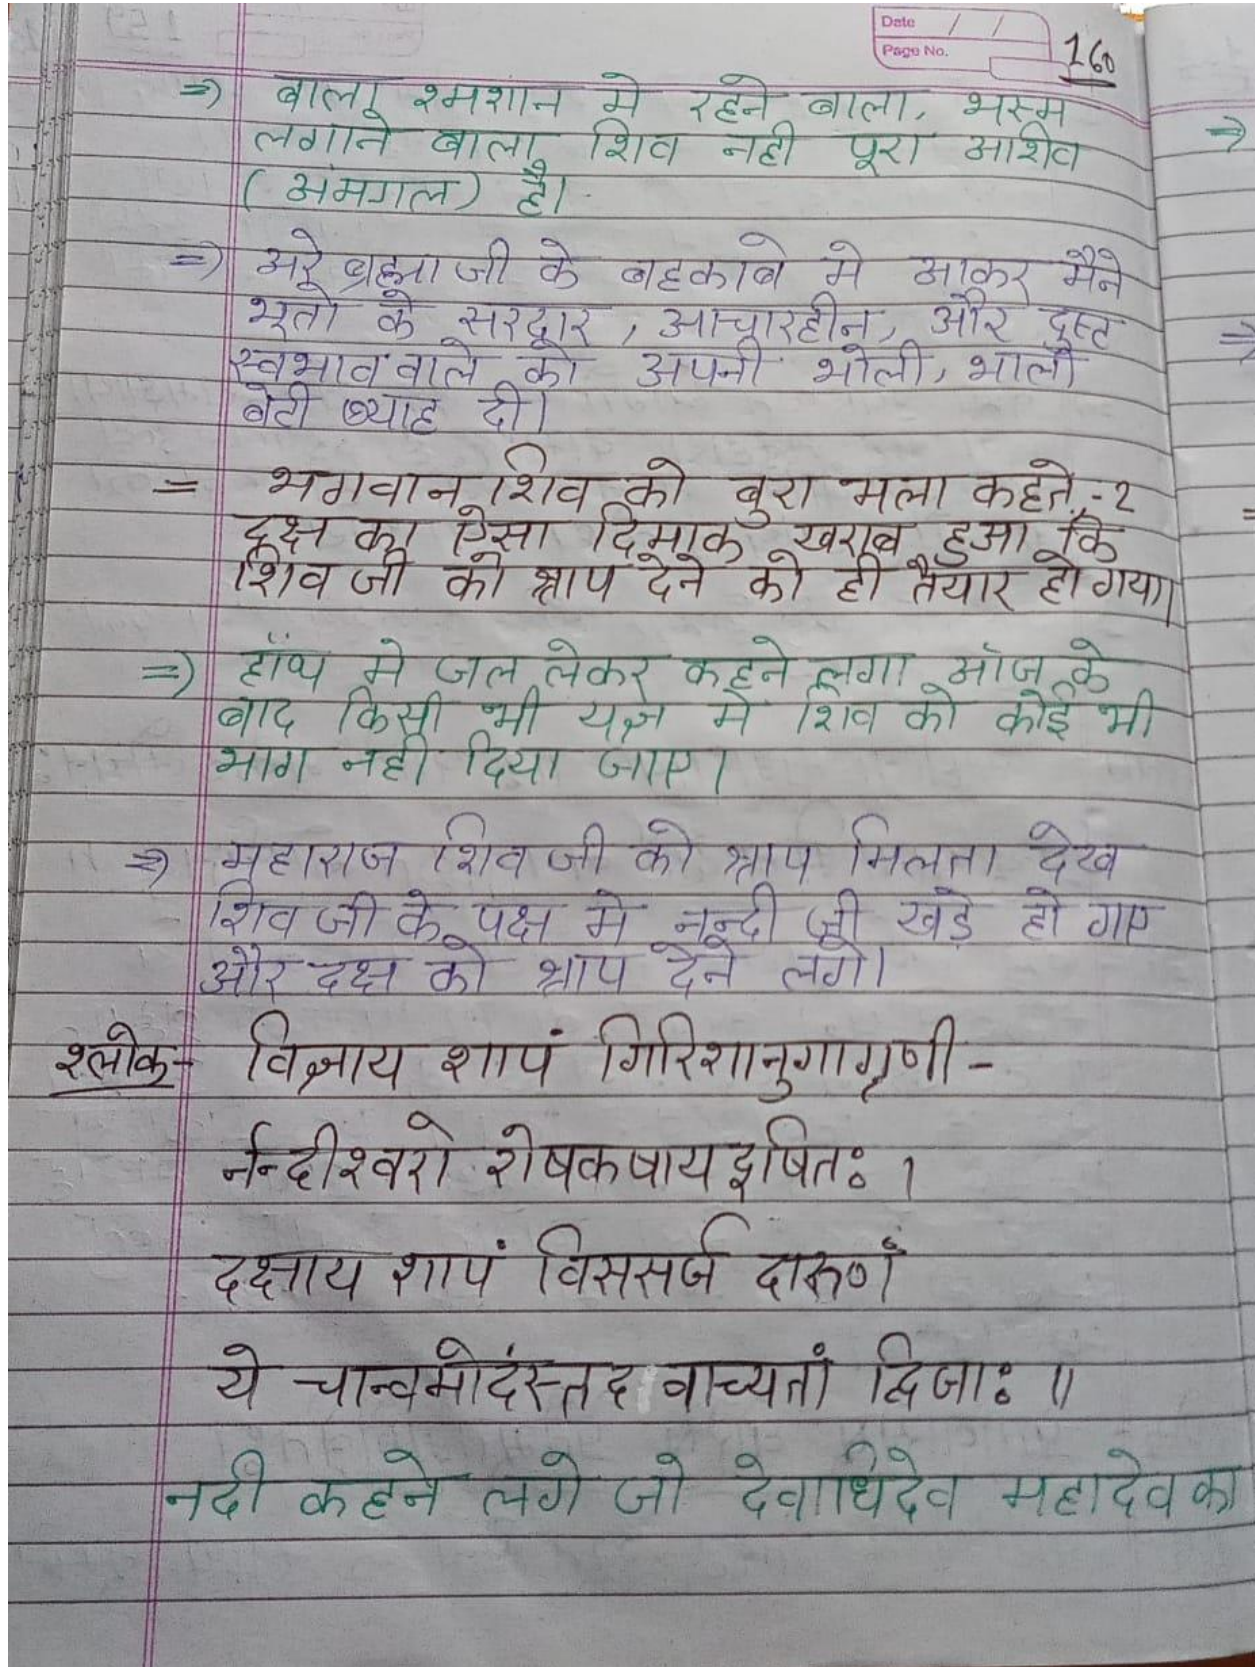 Date / /
Page No.
160
=) बाला, श्मशान मे रहने बाला, भस्म
लगाने बाला, शिव नही पूरा आशिव
(अमंगल) है।
=) अरे ब्रह्मा जी के बहकाबे मे आकर मैने
भूतो के सरदार, आचारहीन, और दुस्ट
स्वभाव वाले को अपनी भोली, भाली
बेटी ब्याह दी।
= भगवान शिव को बुरा भला कहते,-2
दक्ष का ऐसा दिमाक खराब हुआ कि
शिव जी को श्राप देने को ही तैयार हो गया।
=) हाँथ मे जल लेकर कहने लगा आॅज के
बाद किसी भी यज्ञ मे शिव को कोई भी
भाग नही दिया जाए।
=) महाराज शिव जी को श्राप मिलता देख
शिव जी के पक्ष मे नन्दी जी खड़े हो गए
और दक्ष को श्राप देने लगे।
श्लोक- विज्ञाय शापं गिरिशानुगाग्रणी-
र्नन्दीश्वरो रोषकषाय दूषितः ।
दक्षाय शापं विससर्ज दारुणं
ये चान्वमोदंस्तद वाच्यतां द्विजाः ॥
नदी कहने लगे जो देवाधिदेव महादेव का